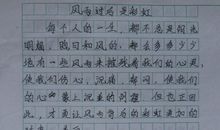 风雨过后是彩虹
每个人的一生，都不总是阳光
明媚，晓日和风的，都会多多少少
地有一些风雨来摧残着我们的心灵，
使我们伤心，沉痛，郁闷，使我们
的心蒙上沉重的阴影。但也正因
此，才更让风雨背后的彩虹更加的